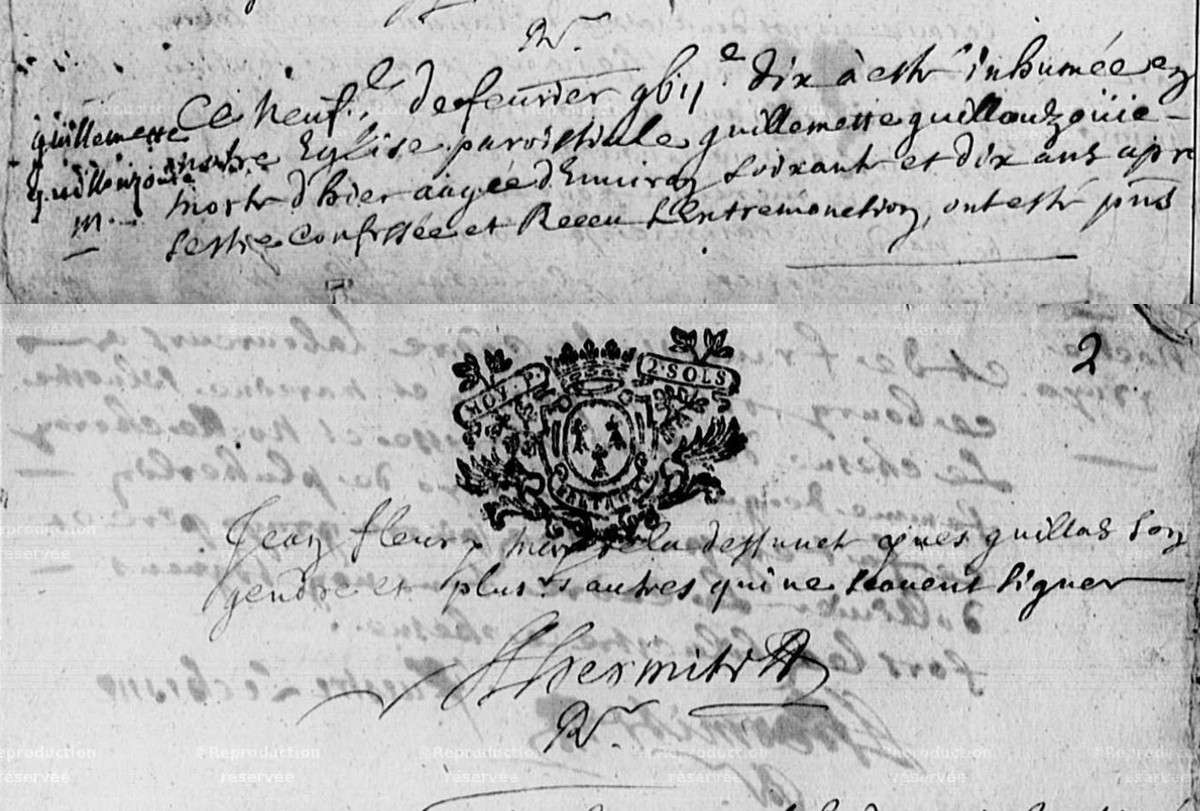 Ce neuf.e de feuvrier gbij.e dix à esté inhumée en
guillemette
nostre Eglise paroissialle guillemette guillouzoüic -
guillouzouic
morte d'hier aagée d'Environ soixante et dix ans apres
m.
sestre Confessée et Receu L'Extremonction, ont esté pnts
2
MOY. P. 2. SOLS
BRETAGNE
Jean fleury mary de la deffunct guillas son
gendre et plusrs autres qui ne scavent signer
Lhermitte
Rr.
©Reproduction réservée